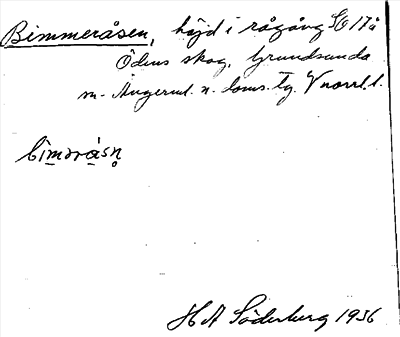 Bimmeråsen, höjd i rågång SO 17 å
Ödens skog, Grundsunda
sn. Ångerml. n. doms. tg. Vnorrl. l.
bimɘråsn̥
H A Söderberg 1936